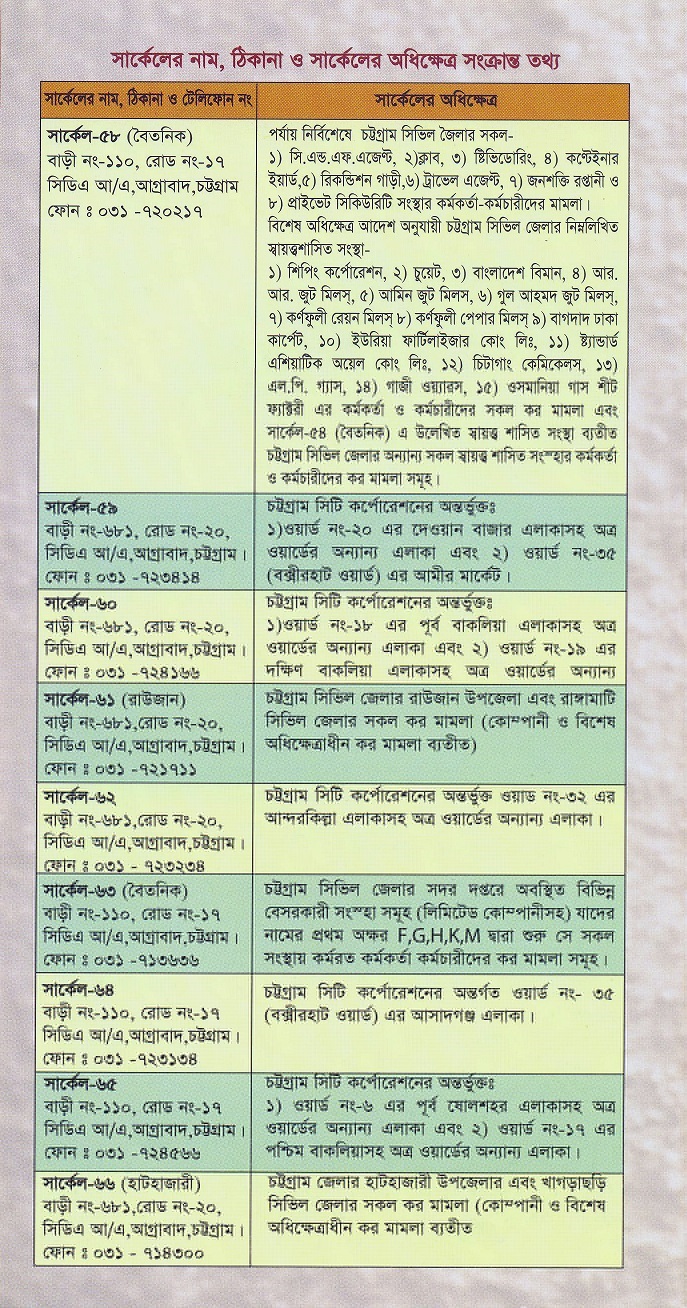 সার্কেলের নাম, ঠিকানা ও সার্কেলের অধিক্ষেত্র সংক্রান্ত তথ্য
সার্কেলের নাম, ঠিকানা ও টেলিফোন নং
সার্কেলের অধিক্ষেত্র
সার্কেল-৫৮ (বৈতনিক)
বাড়ী নং-১১০, রোড নং-১৭
সিডিএ আ/এ,আগ্রাবাদ,চট্টগ্রাম
ফোন ঃ ০৩১ -৭২০২১৭
পর্যায় নির্বিশেষে চট্টগ্রাম সিভিল জৈলার সকল-
১) সি.এন্ড.এফ.এজেন্ট, ২)ক্লাব, ৩) ষ্টিভিডোরিং, ৪) কন্টেইনার
ইয়ার্ড,৫) রিকন্ডিশন গাড়ী,৬) ট্রাভেল এজেন্ট, ৭) জনশক্তি রপ্তানী ও
৮) প্রাইভেট সিকিউরিটি সংস্থার কর্মকর্তা-কর্মচারীদের মামলা।
বিশেষ অধিক্ষেত্র আদেশ অনুযায়ী চট্টগ্রাম সিভিল জেলার নিম্নলিখিত
স্বায়ত্তশাসিত সংস্থা-
১) শিপিং কর্পোরেশন, ২) চুয়েট, ৩) বাংলাদেশ বিমান, ৪) আর.
আর. জুট মিলস্, ৫) আমিন জুট মিলস, ৬) গুল আহমদ জুট মিলস্,
৭) কর্ণফুলী রেয়ন মিলস্ ৮) কর্ণফুলী পেপার মিলস্ ৯) বাগদাদ ঢাকা
কার্পেট, ১০) ইউরিয়া ফার্টিলাইজার কোং লিঃ, ১১) ষ্ট্যান্ডার্ড
এশিয়াটিক অয়েল কোং লিঃ, ১২) চিটাগাং কেমিকেলস, ১৩)
এল.পি. গ্যাস, ১৪) গাজী ওয়্যারস, ১৫) ওসমানিয়া গাস শীট
ফ্যাক্টরী এর কর্মকর্তা ও কর্মচারীদের সকল কর মামলা এবং
সার্কেল-৫৪ (বৈতনিক) এ উলেখিত স্বায়ত্ত শাসিত সংস্থা ব্যতীত
চট্টগ্রাম সিভিল জেলার অন্যান্য সকল স্বায়ত্ত শাসিত সংস্হার কর্মকর্তা
ও কর্মচারীদের কর মামলা সমূহ।
সার্কেল-৫৯
বাড়ী নং-৬৮১, রোড নং-২০,
সিডিএ আ/এ,আগ্রাবাদ,চট্টগ্রাম।
ফোন ঃ ০৩১ -৭২৩৪১৪
চট্টগ্রাম সিটি কর্পোরেশনের অন্তর্ভুক্তঃ
১)ওয়ার্ড নং-২০ এর দেওয়ান বাজার এলাকাসহ অত্র
ওয়ার্ডের অন্যান্য এলাকা এবং ২) ওয়ার্ড নং-৩৫
(বক্সীরহাট ওয়ার্ড) এর আমীর মার্কেট।
সার্কেল-৬০
বাড়ী নং-৬৮১, রোড নং-২০,
সিডিএ আ/এ,আগ্রাবাদ,চট্টগ্রাম।
ফোন ঃ ০৩১ -৭২৪১৬৬
চট্টগ্রাম সিটি কর্পোরেশনের অন্তর্ভুক্তঃ
১)ওয়ার্ড নং-১৮ এর পূর্ব বাকলিয়া এলাকাসহ অত্র
ওয়ার্ডের অন্যান্য এলাকা এবং ২) ওয়ার্ড নং-১৯ এর
দক্ষিণ বাকলিয়া এলাকাসহ অত্র ওয়ার্ডের অন্যান্য
সার্কেল-৬১ (রাউজান)
বাড়ী নং-৬৮১,রোড নং-২০,
সিডিএ আ/এ,আগ্রাবাদ,চট্টগ্রাম।
ফোন ঃ ০৩১ -৭২১৭১১
চট্টগ্রাম সিভিল জেলার রাউজান উপজেলা এবং রাঙ্গামাটি
সিভিল জেলার সকল কর মামলা (কোম্পানী ও বিশেষ
অধিক্ষেত্রাধীন কর মামলা ব্যতীত)
সার্কেল-৬২
বাড়ী নং-৬৮১,রোড নং-২০,
সিডিএ আ/এ,আগ্রাবাদ,চট্টগ্রাম।
ফোন ঃ ০৩১ - ৭২৩২৩৪
চট্টগ্রাম সিটি কর্পোরেশনের অন্তর্ভুক্ত ওয়াড নং-৩২ এর
আন্দরকিল্লা এলাকাসহ অত্র ওয়ার্ডের অন্যান্য এলাকা।
সার্কেল-৬৩ (বৈতনিক)
বাড়ী নং-১১০, রোড নং-১৭
সিডিএ আ/এ,আগ্রাবাদ,চট্টগ্রাম।
ফোন ঃ ০৩১ -৭১৩৬৩৬
চট্টগ্রাম সিভিল জেলার সদর দপ্তরে অবস্থিত বিভিন্ন
বেসরকারী সংস্হা সমূহ (লিমিটেড কোম্পানীসহ) যাদের
নামের প্রথম অক্ষর F,G,H,K,M দ্বারা শুরু সে সকল
সংস্থায় কর্মরত কর্মকর্তা কর্মচারীদের কর মামলা সমূহ।
সার্কেল-৬৪
বাড়ী নং-১১০, রোড নং-১৭
সিডিএ আ/এ,আগ্রাবাদ,চট্টগ্রাম।
ফোন ঃ ০৩১ -৭২৩১৩৪
চট্টগ্রাম সিটি কর্পোরেশনের অন্তর্গত ওয়ার্ড নং- ৩৫
(বক্সীরহাট ওয়ার্ড) এর আসাদগঞ্জ এলাকা।
সার্কেল-৬৫
বাড়ী নং-১১০, রোড নং-১৭
সিডিএ আ/এ,আগ্রাবাদ,চট্টগ্রাম।
ফোন ঃ ০৩১ -৭২৪৫৬৬
চট্টগ্রাম সিটি কর্পোরেশনের অন্তর্ভুক্তঃ
১) ওয়ার্ড নং-৬ এর পূর্ব ষোলশহর এলাকাসহ অত্র
ওয়ার্ডের অন্যান্য এলাকা এবং ২) ওয়ার্ড নং-১৭ এর
পশ্চিম বাকলিয়াসহ অত্র ওয়ার্ডের অন্যান্য এলাকা।
সার্কেল-৬৬ (হাটহাজারী)
বাড়ী নং-৬৮১,রোড নং-২০,
সিডিএ আ/এ,আগ্রাবাদ,চট্টগ্রাম।
ফোন ঃ ০৩১ - ৭১৪৩০০
চট্টগ্রাম জেলার হাটহাজারী উপজেলার এবং খাগড়াছড়ি
সিভিল জেলার সকল কর মামলা (কোম্পানী ও বিশেষ
অধিক্ষেত্রাধীন কর মামলা ব্যতীত